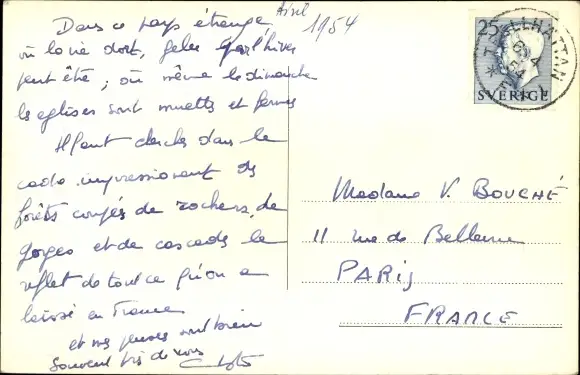 Avril
1954
Dans ce pays étrange
où la vie dort, gelée par l'hiver
peut être ; où même le dimanche
les eglises sont muettes et fermées
Il faut chercher dans le
cadre impressionant des
forêts coupées de rochers, de
gorges et de cascades le
reflet de tout ce qu'on a
laissé en France
et mes pensées sont bien
souvent près de vous
25
SVERIGE
TROLLHÄTTAN
Madame V. BOUCHÉ
11 rue de Bellevue
PARIS
FRANCE